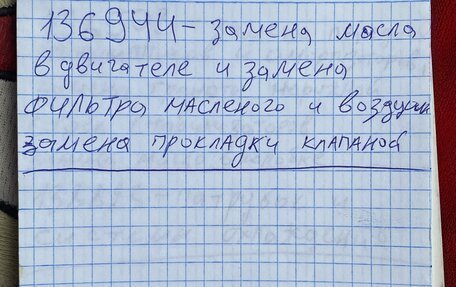 136944 - замена масла
в двигателе и замена
фильтра масленого и воздушн
замена прокладки клапаной